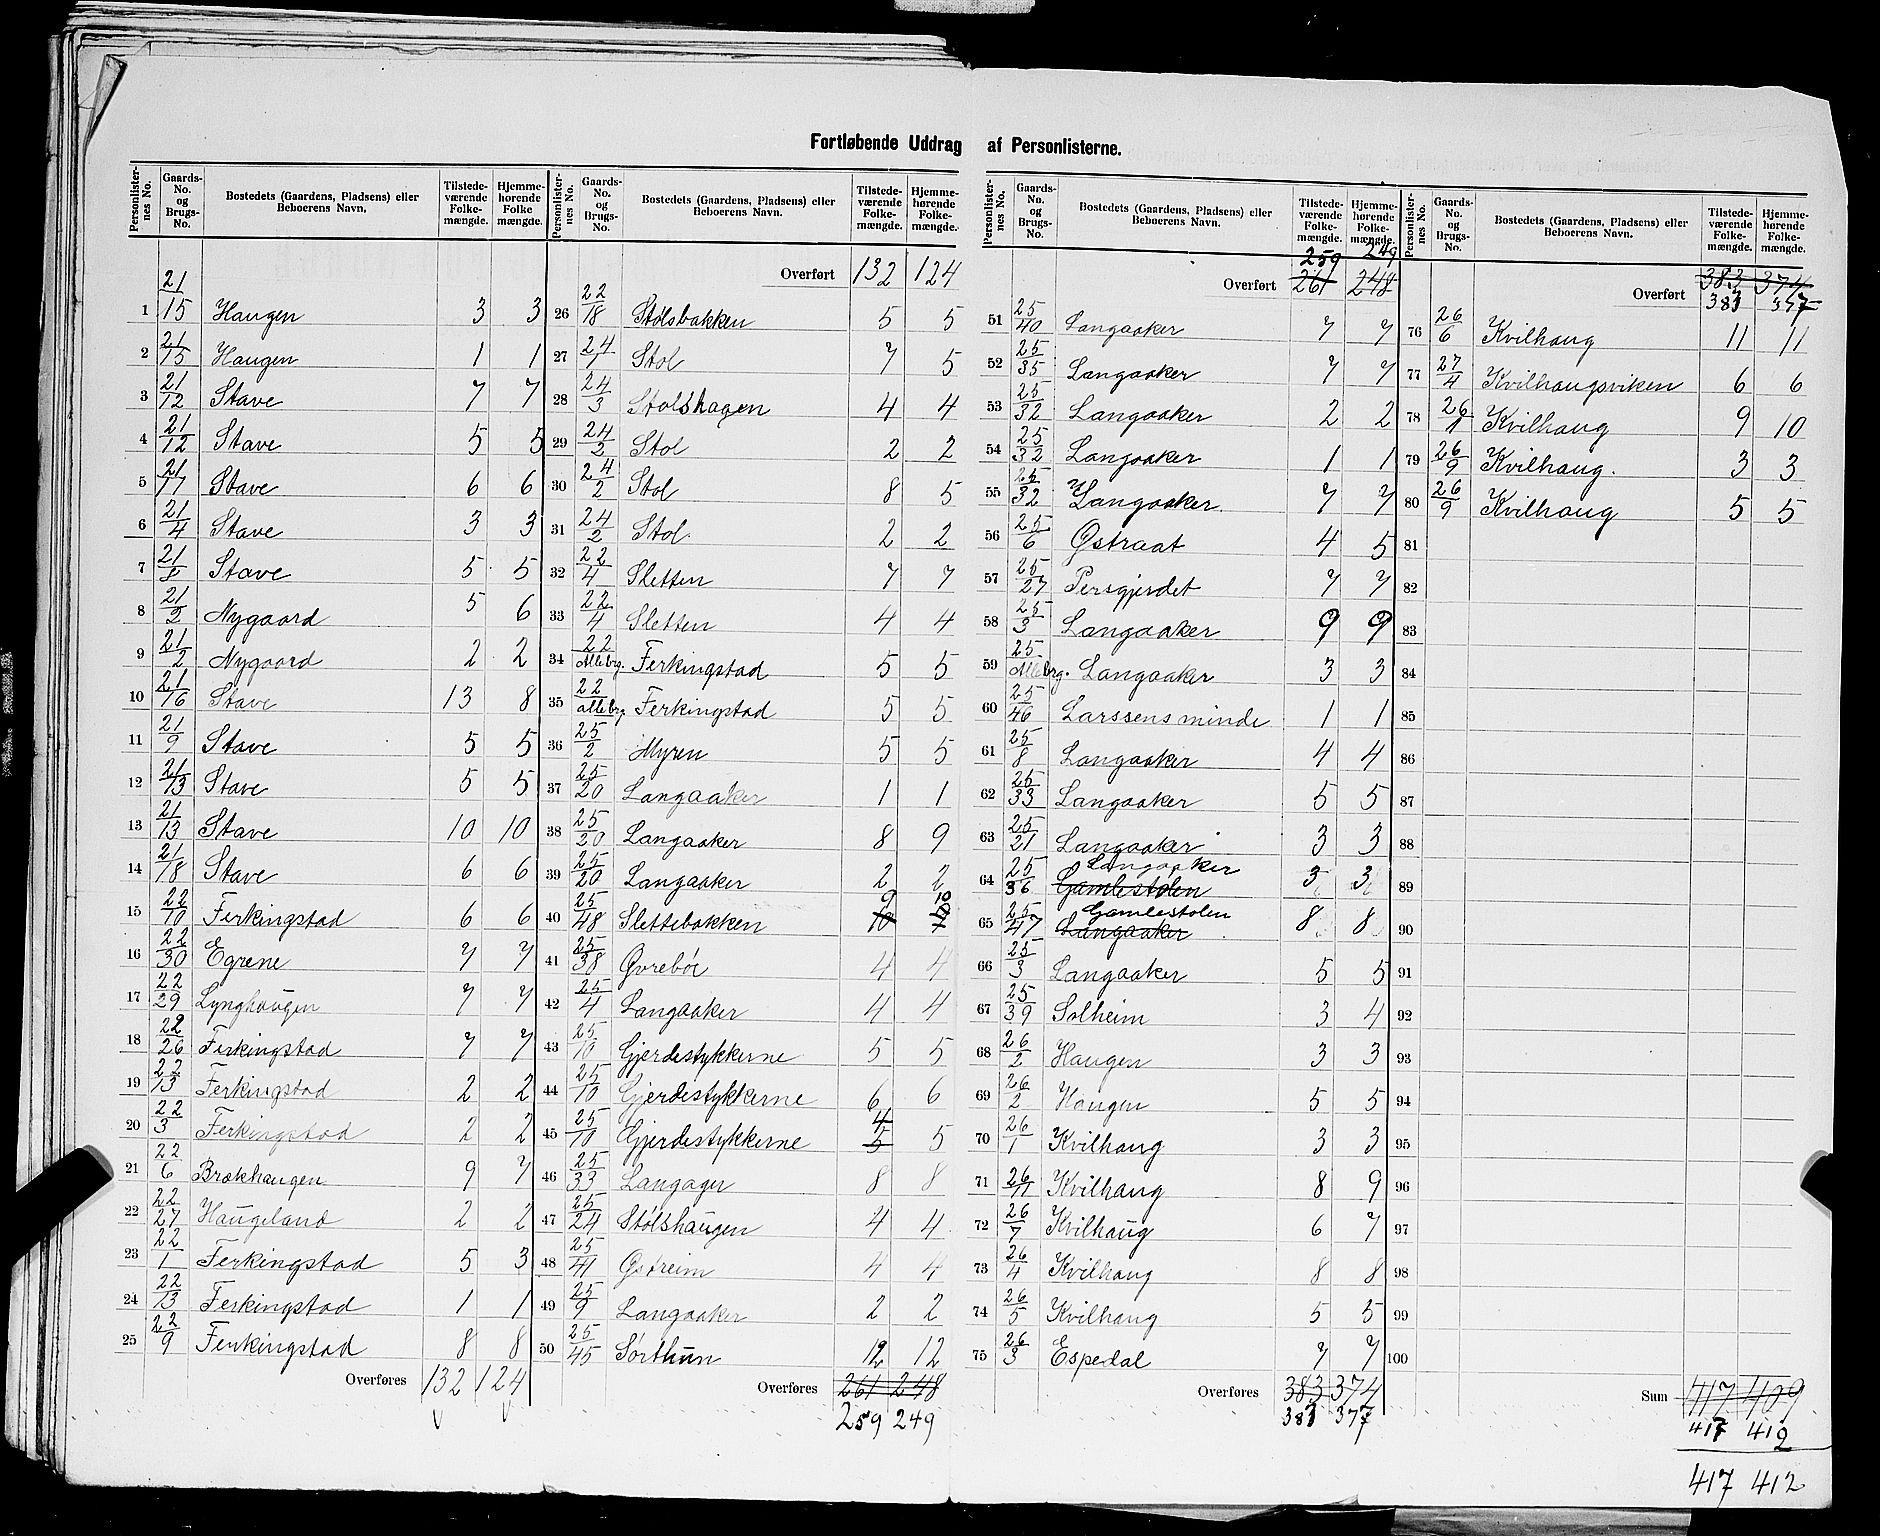 Fortløbende Uddrag af Personlisterne.
Personlisternes No. Gaards-No. og Brugs-No. Bostedets (Gaardens, Pladsens) eller Beboerens Navn. Tilstedeværende Folkemængde. Hjemmehørende Folkemængde.
1 21/15 Haugen 3 3
2 21/15 Haugen 1 1
3 21/12 Stave 7 7
4 21/12 Stave 5 5
5 21/17 Stave 6 6
6 21/4 Stave 3 3
7 21/8 Stave 5 5
8 21/2 Nygaard 5 6
9 21/2 Nygaard 2 2
10 21/16 Stave 13 8
11 21/9 Stave 5 5
12 21/13 Stave 5 5
13 21/13 Stave 10 10
14 21/18 Stave 6 6
15 22/10 Ferkingstad 6 6
16 22/30 Egrene 7 7
17 22/29 Lynghaugen 7 7
18 22/26 Ferkingstad 7 7
19 22/13 Ferkingstad 2 2
20 22/3 Ferkingstad 2 2
21 22/6 Brækhaugen 9 7
22 22/27 Haugeland 2 2
23 22/1 Ferkingstad 5 3
24 22/13 Ferkingstad 1 1
25 22/9 Ferkingstad 8 8
Overføres 132 124
Personlisternes No. Gaards-No. og Brugs-No. Bostedets (Gaardens, Pladsens) eller Beboerens Navn. Tilstedeværende Folkemængde. Hjemmehørende Folkemængde.
Overført 132 124
26 22/18 Stølsbakken 5 5
27 24/1 Stol 7 5
28 24/3 Stolshagen 4 4
29 24/2 Stol 2 2
30 24/2 Stol 8 5
31 24/2 Stol 2 2
32 22/4 Sletten 7 7
33 22/4 Sletten 4 4
34 22/Allebrg. Ferkingstad 5 5
35 22/allebrg Ferkingstad 5 5
36 25/2 Myren 5 5
37 25/20 Langaaker 1 1
38 25/20 Langaaker 8 9
39 25/20 Langaaker 2 2
40 25/48 Slettebakken 9 10 10
41 25/38 Øvreböe 4 4
42 25/4 Langaaker 4 4
43 25/10 Gjerdestykkerne 5 5
44 25/10 Gjerdestykkerne 6 6
45 25/10 Gjerdestykkerne 4 5 5
46 25/33 Langager 8 8
47 25/24 Stølshaugen 4 4
48 25/41 Østreim 4 4
49 25/9 Langaaker 2 2
50 25/45 Sørthun 12 12
Overføres 261 248
259 249
Personlisternes No. Gaards-No. og Brugs-No. Bostedets (Gaardens, Pladsens) eller Beboerens Navn. Tilstedeværende Folkemængde. Hjemmehørende Folkemængde.
259 249
Overført 261 248
51 25/40 Langaaker 7 7
52 25/35 Langaaker 7 7
53 25/32 Langaaker 2 2
54 25/32 Langaaker 1 1
55 25/32 Langaaker 7 7
56 25/6 Østraat 4 5
57 25/27 Persgjerdet 7 7
58 25/3 Langaaker 9 9
59 25/Allebrg. Langaaker 3 3
60 25/46 Larssens minde 1 1
61 25/8 Langaaker 4 4
62 25/33 Langaaker 5 5
63 25/21 Langaaker 3 3
64 25/36 Langaaker Gamlestolen 3 3
65 25/47 Gamlestolen Langaaker 8 8
66 25/3 Langaaker 5 5
67 25/39 Solheim 3 4
68 26/2 Haugen 3 3
69 26/2 Haugen 5 5
70 26/1 Kvilhaug 3 3
71 26/11 Kvilhaug 8 9
72 26/7 Kvilhaug 6 7
73 26/4 Kvilhaug 8 8
74 26/5 Kvilhaug 5 5
75 26/3 Espedal 7 7
Overføres 383 374
383 377
Personlisternes No. Gaards-No. og Brugs-No. Bostedets (Gaardens, Pladsens) eller Beboerens Navn. Tilstedeværende Folkemængde. Hjemmehørende Folkemængde.
383 374
Overført 383 377
76 26/6 Kvilhaug 11 11
77 27/4 Kvilhaugsviken 6 6
78 26/1 Kvilhaug 9 10
79 26/9 Kvilhaug. 3 3
80 26/9 Kvilhaug 5 5
81
82
83
84
85
86
87
88
89
90
91
92
93
94
95
96
97
98
99
100
Sum 417 409
417 412
417 412